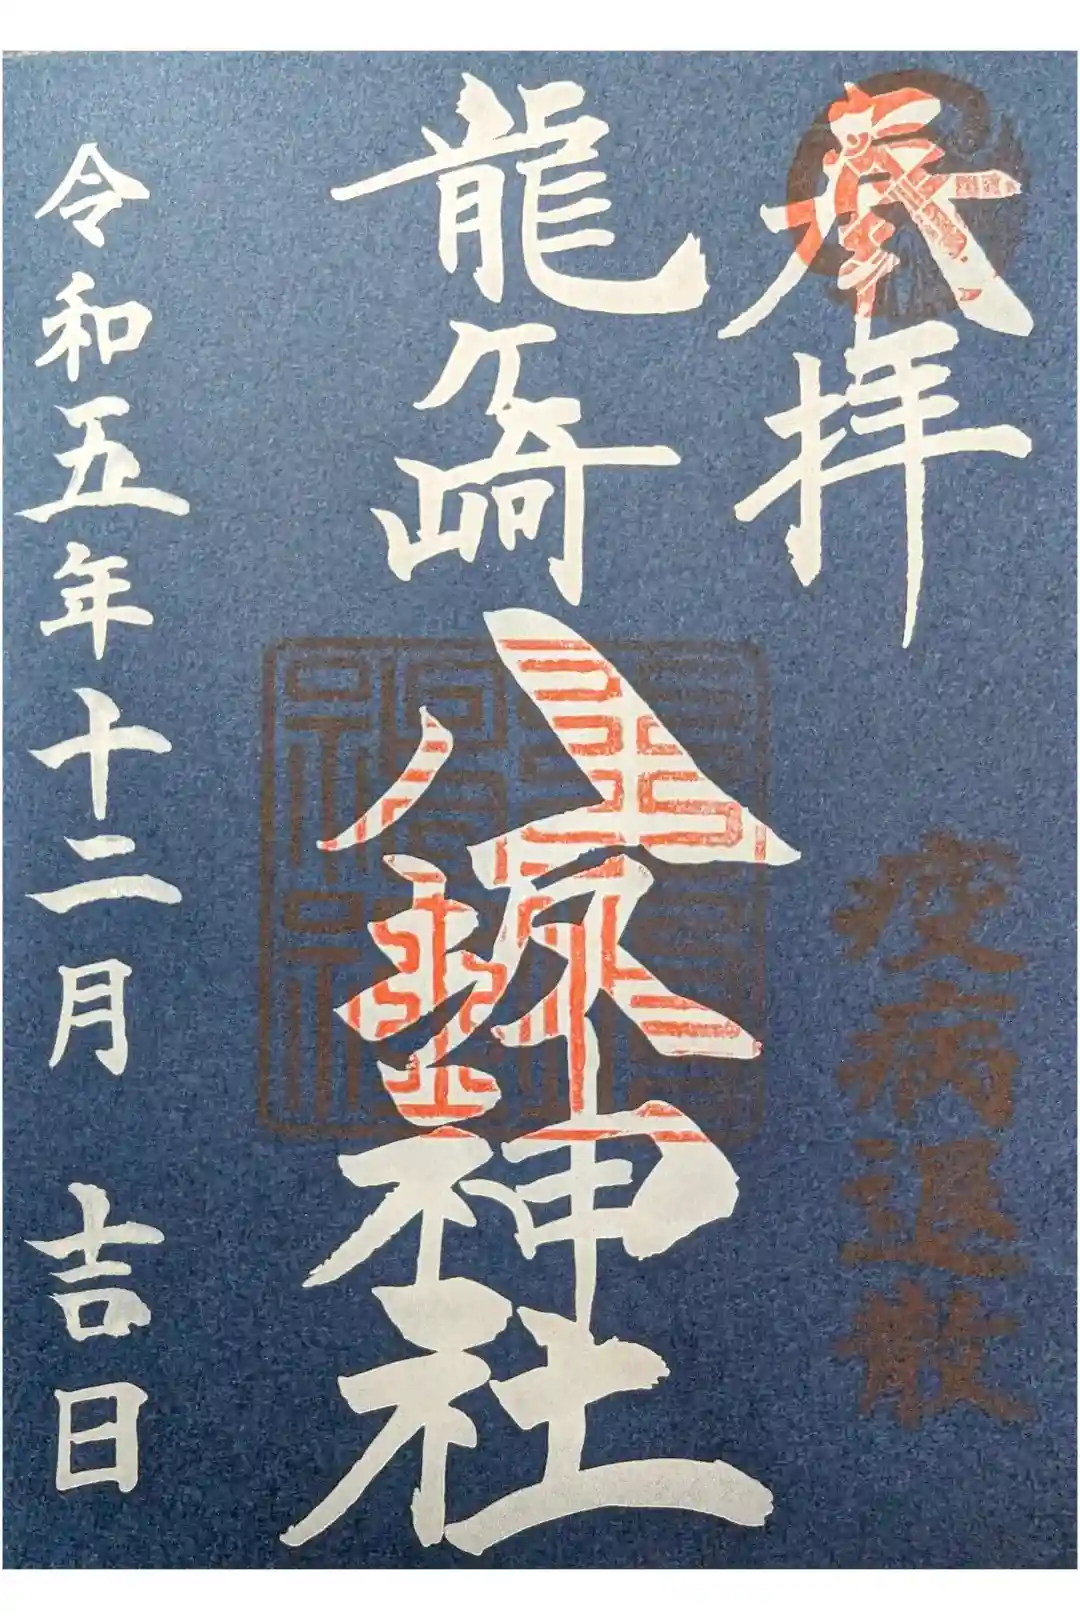 奉拝
疫病退散
龍ヶ崎八坂神社
令和五年十二月 吉日